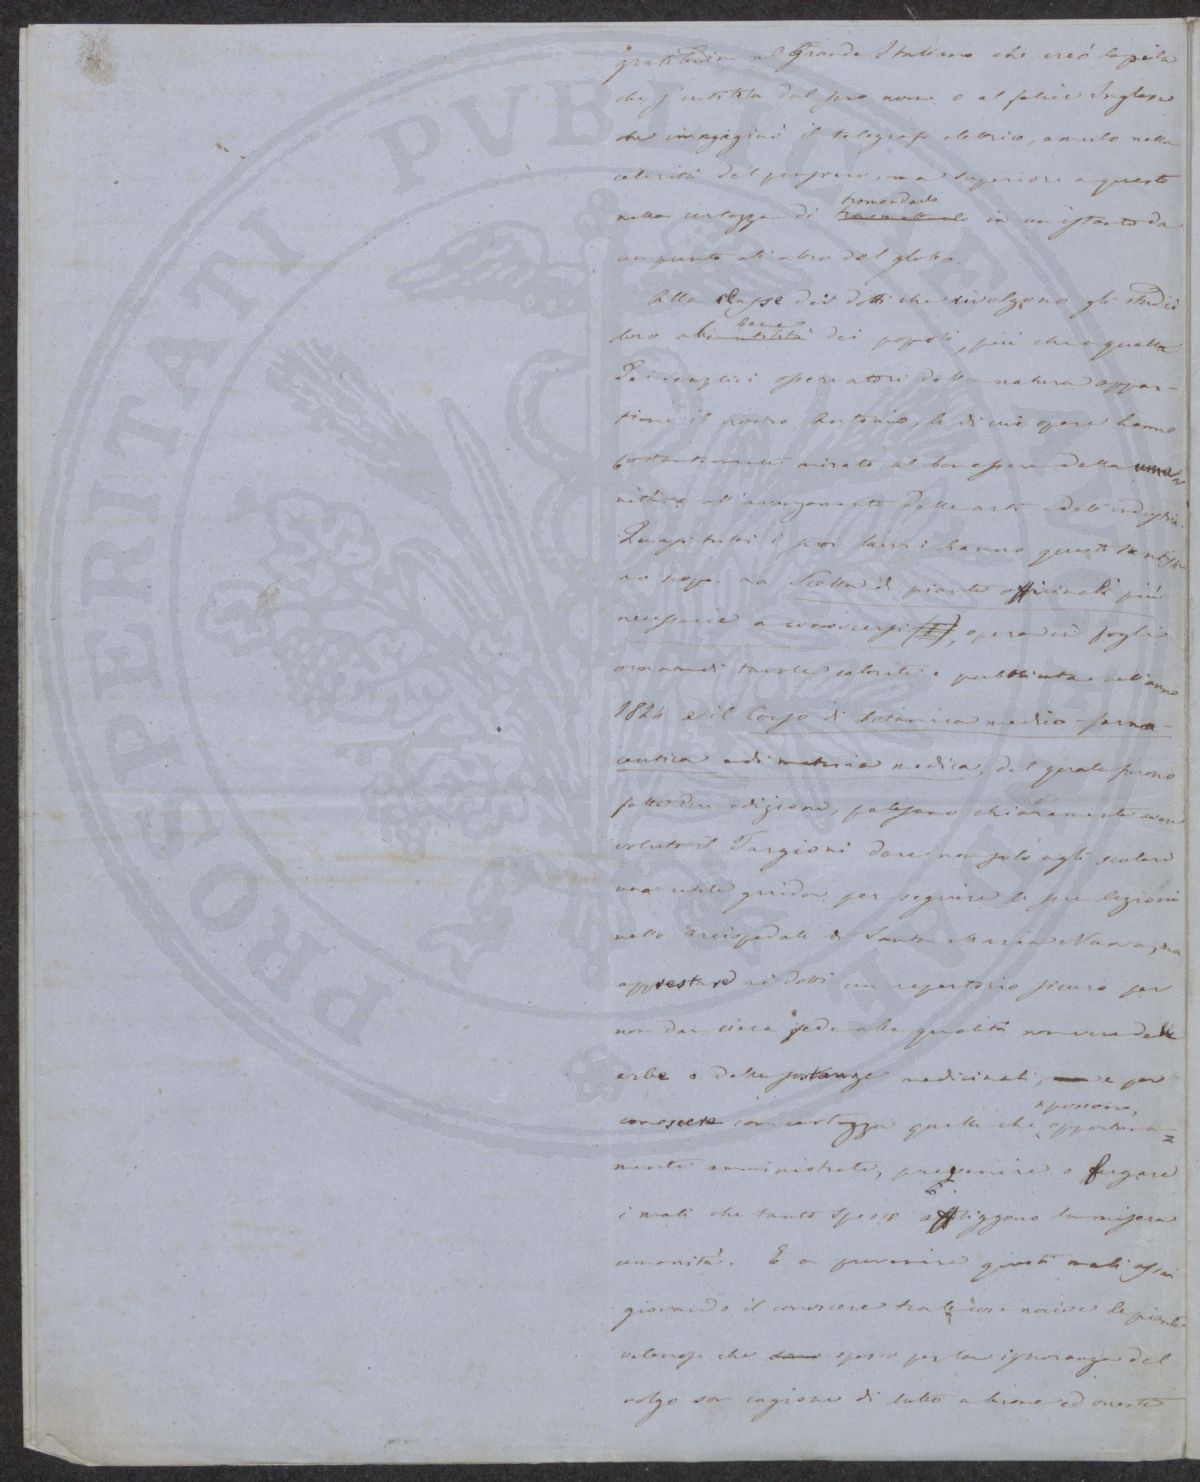 gratitudine al Grande Italiano che creò la pila
che s'intitola dal suo nome o al felice Inglese
che immaginò il telegrafo elettrico, emulo nella
celerità del pensiero, ma superiore a questo
nella certezza di tramandarlo trasmetterlo in un istante da
un punto all'altro del globo.
Alla classe dei dotti che rivolgono gli studii
loro al bene utilità dei popoli, più che a quella
dei semplici osservatori della natura appar-
tiene il nostro Antonio, le di cui opere hanno
costantemente mirato al benessere della uma-
nità e all'avanzamento delle arti e dell'industria.
Quasi tutti i suoi lavori hanno questo santissi-
mo scopo. La Scelta di piante officinali più
necessarie a conoscersi (1), opera in foglio
ornata di tavole colorate e pubblicata nell'anno
1824 e il Corso di botanica medico-farma-
ceutica e di materia medica, del quale furono
fatte due edizioni, palesano chiaramente avere
voluto il Targioni dare non solo agli scolari
una utile guida per seguire le sue lezioni
nello Arcispedale di Santa Maria Nuova, ma
apprestare ai dotti un repertorio sicuro per
non dar cieca fede alle qualità non vere delle
erbe o delle sostanze medicinali, e per
conoscere con certezza quelle che possono, opportuna=
mente amministrate, prevenire o fugare
i mali che tanto spesso affliggono la misera
umanità. E a prevenire questi mali assai
giovando il conoscere tra le cose nocive le piante
velenose che spesso per la ignoranza del
volgo son cagione di lutto a buone ed oneste
PROSPERITATI PUBLICAE AUGENDAE